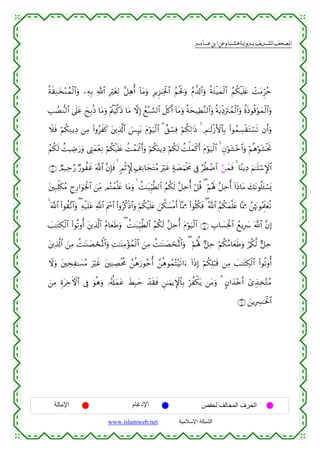 المصحف الشريف برواية هشام عن ابن عامر
حُرِّمَتْ عَلَيْكُمُ ٱلْمَيْتَةُ وَٱلدَّمُ وَلَحْمُ ٱلْخِنزِيرِ وَمَآ أُهِلَّ لِغَيْرِ ٱللَّهِ بِهِۦ وَٱلْمُنْخَنِقَةُ
وَٱلْمَوْقُوذَةُ وَٱلْمُتَرَدِّيَةُ وَٱلنَّطِيحَةُ وَمَآ أَكَلَ ٱلسَّبُعُ إِلَّا مَا ذَكَّيْتُمْ وَمَا ذُبِحَ عَلَى ٱلنُّصُبِ
وَأَن تَسْتَقْسِمُوا۟ بِٱلْأَزْلَـٰمِ ۚ ذَٰلِكُمْ فِسْقٌ ۗ ٱلْيَوْمَ يَئِسَ ٱلَّذِينَ كَفَرُوا۟ مِن دِينِكُمْ فَلَا
تَخْشَوْهُمْ وَٱخْشَوْنِ ۚ ٱلْيَوْمَ أَكْمَلْتُ لَكُمْ دِينَكُمْ وَأَتْمَمْتُ عَلَيْكُمْ نِعْمَتِى وَرَضِيتُ لَكُمُ
ٱلْإِسْلَـٰمَ دِينًا ۚ فَمَنُ ٱضْطُرَّ فِى مَخْمَصَةٍ غَيْرَ مُتَجَانِفٍ لِّإِثْمٍ ۙ فَإِنَّ ٱللَّهَ غَفُورٌ رَّحِيمٌ
يَسْـَٔلُونَكَ مَاذَآ أُحِلَّ لَهُمْ ۖ قُلْ أُحِلَّ لَكُمُ ٱلطَّيِّبَـٰتُ ۙ وَمَا عَلَّمْتُم مِّنَ ٱلْجَوَارِحِ مُكَلِّبِينَ
تُعَلِّمُونَهُنَّ مِمَّا عَلَّمَكُمُ ٱللَّهُ ۖ فَكُلُوا۟ مِمَّآ أَمْسَكْنَ عَلَيْكُمْ وَٱذْكُرُوا۟ ٱسْمَ ٱللَّهِ عَلَيْهِ ۖ وَٱتَّقُوا۟ ٱللَّهَ ۚ
إِنَّ ٱللَّهَ سَرِيعُ ٱلْحِسَابِ ٱلْيَوْمَ أُحِلَّ لَكُمُ ٱلطَّيِّبَـٰتُ ۖ وَطَعَامُ ٱلَّذِينَ أُوتُوا۟ ٱلْكِتَـٰبَ
حِلٌّ لَّكُمْ وَطَعَامُكُمْ حِلٌّ لَّهُمْ ۖ وَٱلْمُحْصَنَـٰتُ مِنَ ٱلْمُؤْمِنَـٰتِ وَٱلْمُحْصَنَـٰتُ مِنَ ٱلَّذِينَ
أُوتُوا۟ ٱلْكِتَـٰبَ مِن قَبْلِكُمْ إِذَآ ءَاتَيْتُمُوهُنَّ أُجُورَهُنَّ مُحْصِنِينَ غَيْرَ مُسَـٰفِحِينَ وَلَا
مُتَّخِذِىٓ أَخْدَانٍ ۗ وَمَن يَكْفُرْ بِٱلْإِيمَـٰنِ فَقَدْ حَبِطَ عَمَلُهُۥ وَهُوَ فِى ٱلْـَٔاخِرَةِ مِنَ
ٱلْخَـٰسِرِينَ
الحرف المخالف لحفص
الإدغام
الإمالة
الشبكة الإسلامية
www.islamweb.net